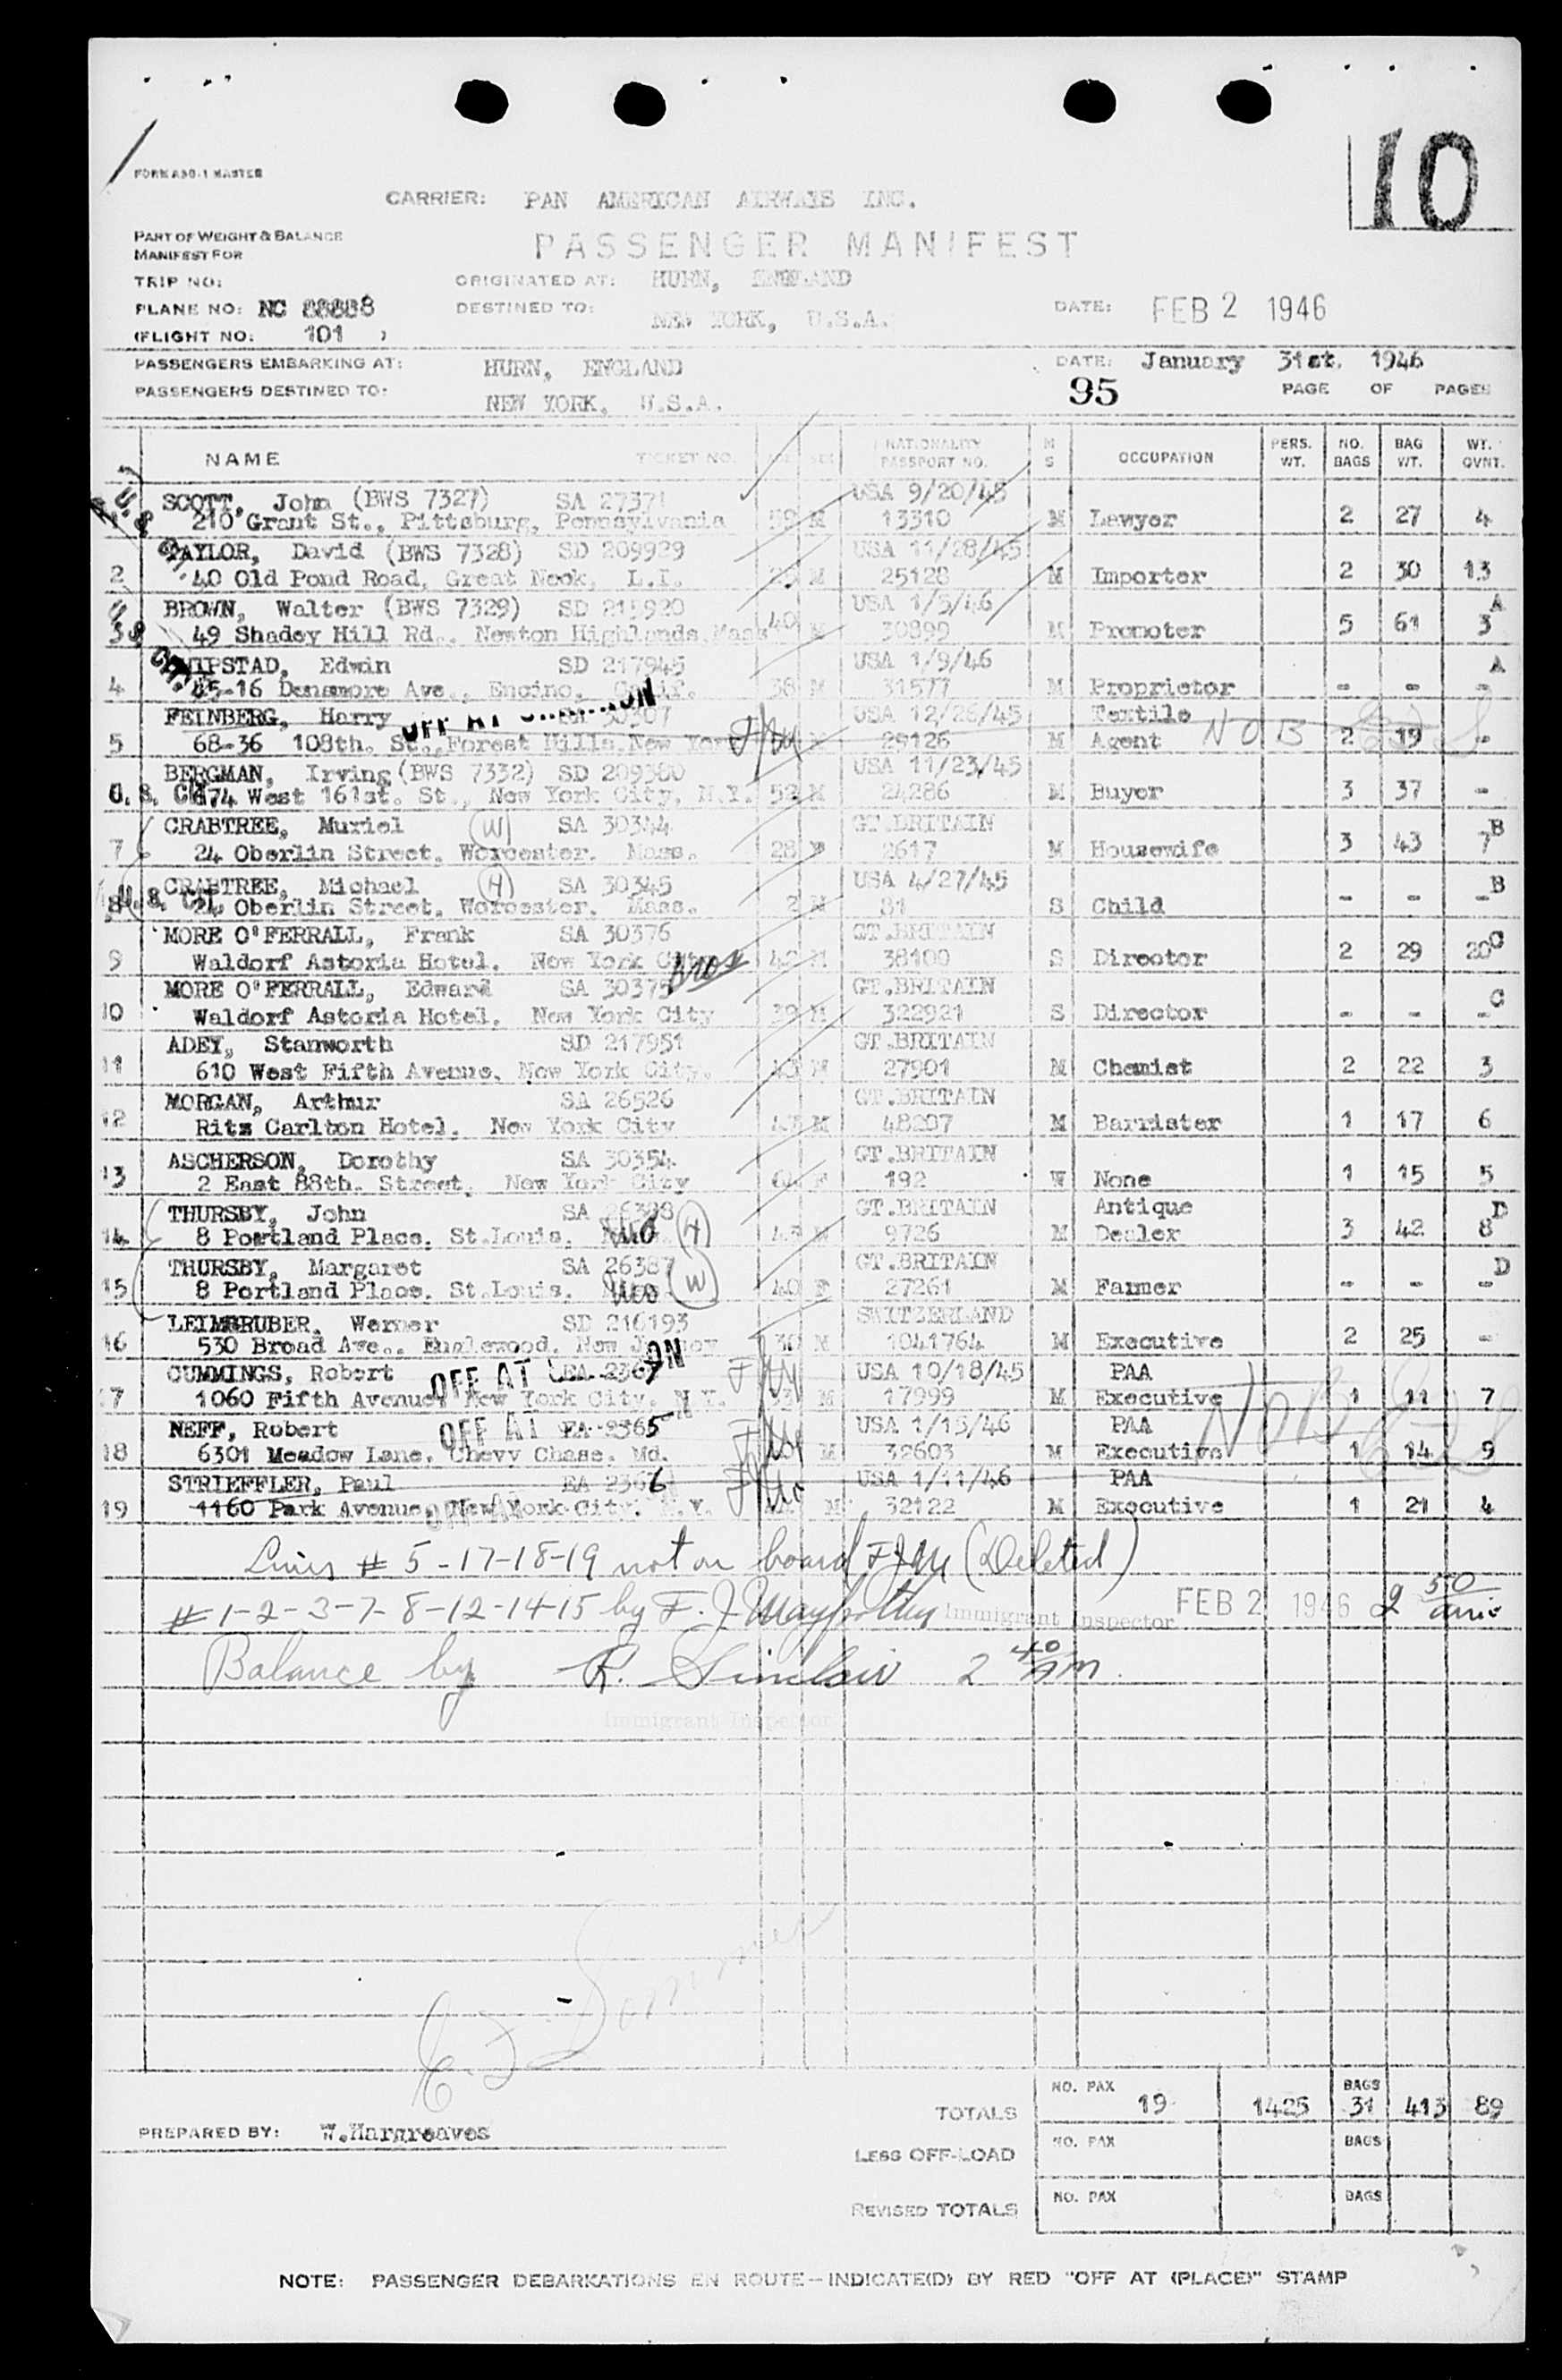 10
FORM A30-1 MASTER
CARRIER: PAN AMERICAN AIRWAYS INC.
PART OF WEIGHT & BALANCE
MANIFEST FOR
PASSENGER MANIFEST
TRIP NO:
ORIGINATED AT: HURN, ENGLAND
PLANE NO: NC 88888
DESTINED TO: NEW YORK, U.S.A.
DATE: FEB 2 1946
(FLIGHT NO: 101 )
PASSENGERS EMBARKING AT: HURN, ENGLAND
DATE: January 31st. 1946
PASSENGERS DESTINED TO: NEW YORK, U.S.A.
95
PAGE OF PAGES
NAME TICKET NO. AGE SEX NATIONALITY PASSPORT NO. M S OCCUPATION PERS. WT. NO. BAGS BAG WT. WT. OVNT.
SCOTT, John (BWS 7327) SA 27371 USA 9/20/45
210 Grant St., Pittsburg, Pennsylvania 58 M 13310 M Lawyer 2 27 4
TAYLOR, David (BWS 7328) SD 209929 USA 11/28/45
2 40 Old Pond Road, Great Neck, L.I. M 25128 M Importer 2 30 13
BROWN, Walter (BWS 7329) SD 215920 USA 1/5/46 A
3 49 Shadey Hill Rd., Newton Highlands, Mass 40 M 30899 M Promoter 5 61 3
SHIPSTAD, Edwin SD 217945 USA 1/9/46 A
4 45-16 Densmore Ave., Encino, Calif. 38 M 31577 M Proprietor - - -
FEINBERG, Harry 30307 USA 12/26/45 Textile
5 68-36 108th. St., Forest Hills, New York 29126 M Agent NOB 2 19 -
BERGMAN, Irving (BWS 7332) SD 209380 USA 11/23/45
U. S. CIT. 674 West 161st. St., New York City, N.Y. 52 M 24286 M Buyer 3 37 -
CRABTREE, Muriel (W) SA 30344 GT.BRITAIN B
7 24 Oberlin Street. Worcester. Mass. 28 F 2617 M Housewife 3 43 7
CRABTREE, Michael (H) SA 30345 USA 4/27/45 B
8 U. S. CIT. 24 Oberlin Street. Worcester. Mass. 2 M 31 S Child - - -
MORE O'FERRALL, Frank SA 30376 GT.BRITAIN
9 Waldorf Astoria Hotel. New York City 42 M 38100 S Director 2 29 20 C
MORE O'FERRALL, Edward SA 30375 GT.BRITAIN C
10 Waldorf Astoria Hotel. New York City 39 M 322921 S Director - - -
ADEY, Stanworth SD 217951 GT.BRITAIN
11 610 West Fifth Avenue. New York City. 43 M 27901 M Chemist 2 22 3
MORGAN, Arthur SA 26526 GT.BRITAIN
12 Ritz Carlton Hotel. New York City 43 M 48207 M Barrister 1 17 6
ASCHERSON, Dorothy SA 30354 GT.BRITAIN
13 2 East 88th. Street. New York City F 192 W None 1 15 5
THURSBY, John SA 26388 GT.BRITAIN Antique D
14 8 Portland Place. St.Louis. Mo (H) 43 M 9726 M Dealer 3 42 8
THURSBY, Margaret SA 26387 GT.BRITAIN D
15 8 Portland Place. St.Louis. Mo (W) 40 F 27261 M Farmer - - -
LEIMGRUBER, Werner SD 216193 SWITZERLAND
16 530 Broad Ave., Englewood. New Jersey 30 M 1041764 M Executive 2 25 -
CUMMINGS, Robert EA 2367 USA 10/18/45 PAA
OFF AT
17 1060 Fifth Avenue, New York City. N.Y. 33 M 17999 M Executive 1 11 7
NEFF, Robert EA 2365 USA 1/15/46 PAA
OFF AT
NOB
18 6301 Meadow Lane. Chevy Chase. Md. M 32603 M Executive 1 14 9
STRIEFFLER, Paul EA 2366 USA 1/11/46 PAA
19 1160 Park Avenue, New York City. N.Y. M 32122 M Executive 1 21 4
Lines # 5-17-18-19 not on board FJM (Deleted)
# 1-2-3-7-8-12-14-15 by F. J. Immigrant Inspector FEB 2 1946 2 50
Balance by R. Sinclair 2 40 AM.
Immigrant Inspector
PREPARED BY: W.Hargreaves
TOTALS NO. PAX 19 1425 BAGS 31 413 89
LESS OFF-LOAD NO. PAX BAGS
REVISED TOTALS NO. PAX BAGS
NOTE: PASSENGER DEBARKATIONS EN ROUTE—INDICATE(D) BY RED "OFF AT (PLACE)" STAMP